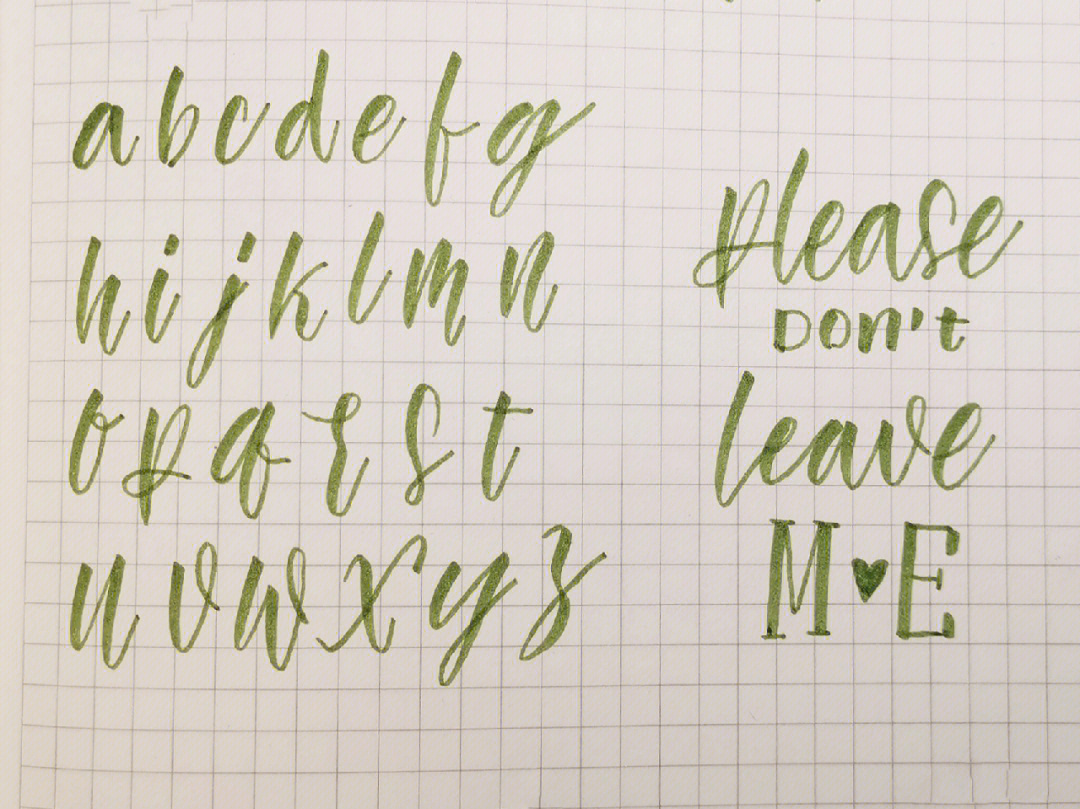 abcdefg
hijklmn
opqrst
uvwxyz
please
DON't
leave
M♥E